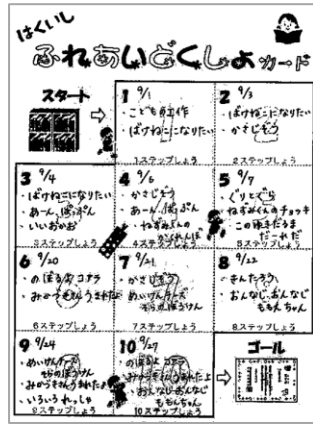 はくいし
ふれあいどくしょカード
スタート
1 9/1
・こども工作
・ばけねこになりたい
1ステップしょう
2 9/3
・ばけねこになりたい
・かさじぞう
2ステップしょう
3 9/4
・ばけねこになりたい
・あーん、ぱっぷん
・いいおかお
3ステップしょう
4 9/6
・かさじぞう
・あーん、ぱっぷん
・ねずみくんの
4ステップしょう
5 9/7
・ぐりとぐら
・ねずみくんのチョッキ
・このゆきだるま
だーれだ
5ステップしょう
6 9/20
・のぼるよ コアラ
・みかづきさんうまれたよ
6ステップしょう
7 9/21
・かさじぞう
・めいけんクーズ
そらのぼうけん
7ステップしょう
8 9/22
・きんたろう
・おんなじ、おんなじ
ももんちゃん
8ステップしょう
9 9/24
・めいけんクーズ
そらのぼうけん
・みかづきさんうまれたよ
・いろいろれっしゃ
9ステップしょう
10 9/27
・のぼるよ コアラ
・みかづきさんうまれたよ
・おんなじおんなじ
ももんちゃん
10ステップしょう
ゴール